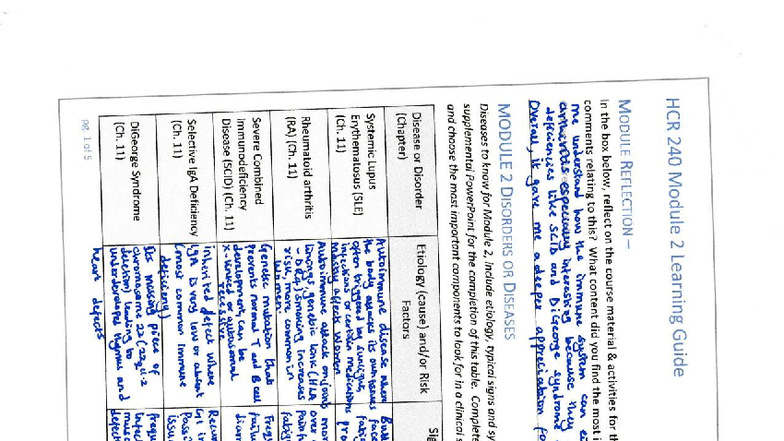 HCR 240 Module 2 Learning Guide
MODULE REFLECTION –
In the box below, reflect on the course material & activities for th
comments relating to this? What content did you find the most i
me understand how the immune system can ei
arthritis especially interesting because they
deficiencies like SCID and DiGeorge syndrome
Overall, it gave me a deeper appreciation fo
MODULE 2 DISORDERS OR DISEASES
Diseases to know for Module 2, include etiology, typical signs and sy
supplemental PowerPoint for the completion of this table. Complete
and choose the most important components to look for in a clinical s
Disease or Disorder
(Chapter)
Etiology (cause) and/or Risk
Factors
Sig
Systemic Lupus
Erythematosus (SLE)
(Ch. 11)
Autoimmune disease where
the body attacks its own tissues
often triggered by
infections or certain medications
Massey affects women
Rheumatoid arthritis
(RA) (Ch. 11)
Autoimmune attack on joints
genetic link (HLA
smoking increases
risk, more common in
women
Severe Combined
Immunodeficiency
Disease (SCID) (Ch. 11)
Genetic mutation that
Prevents normal T and B cell
development, can be
x-linked or autosomal
recessive
Selective IgA Deficiency
(Ch. 11)
inherited defect where
IgA is very low or absent
(most common immune
deficiency)
DiGeorge Syndrome
(Ch. 11)
Its missing piece of
chromosome 22 (22q11.2
deletion) leading to
underdeveloped thymus and
heart defects
pg. 1 of 5